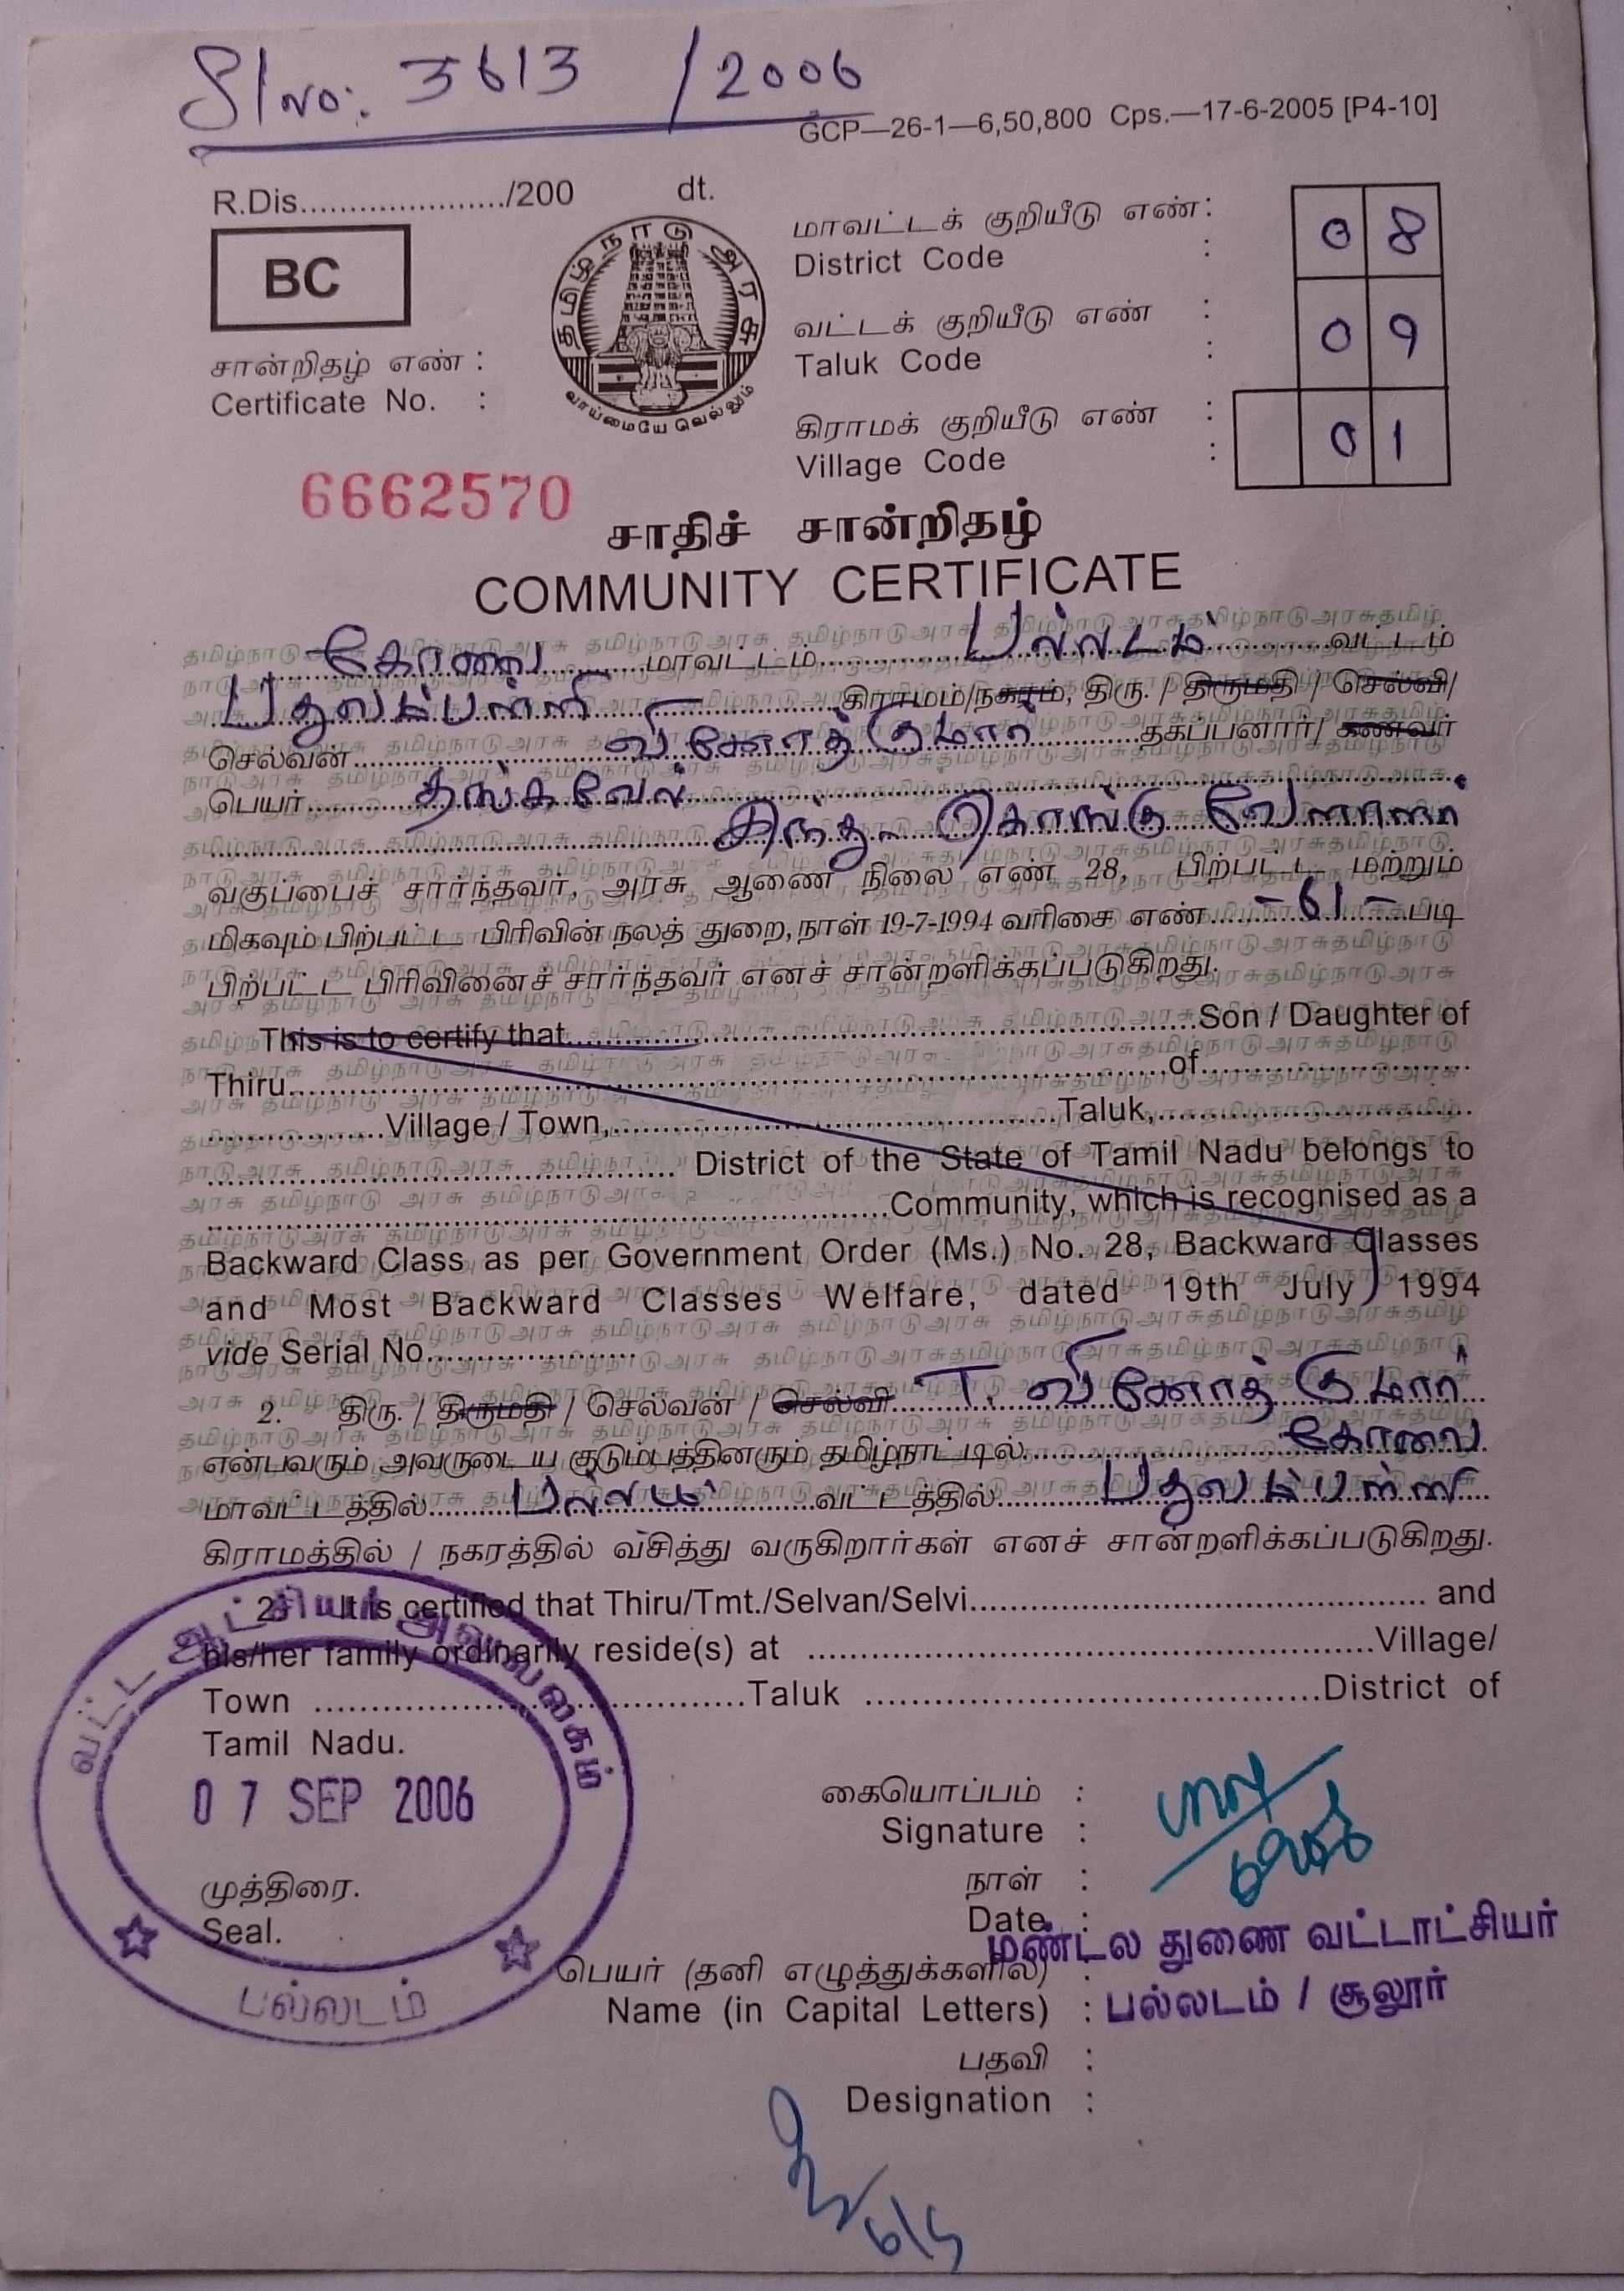 Sl no: 3613 / 2006
GCP—26-1—6,50,800 Cps.—17-6-2005 [P4-10]
R.Dis...................../200 dt.
BC
தமிழ்நாடு அரசு
வாய்மையே வெல்லும்
மாவட்டக் குறியீடு எண் : 08
District Code :
வட்டக் குறியீடு எண் : 09
Taluk Code :
கிராமக் குறியீடு எண் : 01
Village Code :
சான்றிதழ் எண் :
Certificate No. :
6662570
சாதிச் சான்றிதழ்
COMMUNITY CERTIFICATE
கோவை மாவட்டம் பல்லடம் வட்டம்
கிராமம்/நகரம், திரு. / திருமதி / செல்வி/
செல்வன் வினோத்குமார் தகப்பனார்/ கணவர்
பெயர் தங்கவேல்
இந்து கொங்கு வேளாளர்
வகுப்பைச் சார்ந்தவர், அரசு ஆணை நிலை எண் 28, பிற்பட்ட மற்றும்
மிகவும் பிற்பட்ட பிரிவின் நலத் துறை, நாள் 19-7-1994 வரிசை எண் -61- படி
பிற்பட்ட பிரிவினைச் சார்ந்தவர் எனச் சான்றளிக்கப்படுகிறது.
This is to certify that..........Son / Daughter of
Thiru..........of..........
..........Village / Town,..........Taluk,..........
.......... District of the State of Tamil Nadu belongs to
..........Community, which is recognised as a
Backward Class as per Government Order (Ms.) No. 28, Backward Classes
and Most Backward Classes Welfare, dated 19th July 1994
vide Serial No..........
2. திரு. / திருமதி / செல்வன் / செல்வி T. வினோத்குமார்
என்பவரும் அவருடைய குடும்பத்தினரும் தமிழ்நாட்டில் கோவை
மாவட்டத்தில் வட்டத்தில்
கிராமத்தில் / நகரத்தில் வசித்து வருகிறார்கள் எனச் சான்றளிக்கப்படுகிறது.
2. It is certified that Thiru/Tmt./Selvan/Selvi.......... and
his/her family ordinarily reside(s) at ..........Village/
Town ..........Taluk ..........District of
Tamil Nadu.
வட்ட ஆட்சியர் அலுவலகம்
07 SEP 2006
பல்லடம்
கையொப்பம் :
Signature :
முத்திரை.
Seal.
நாள் :
Date :
மண்டல துணை வட்டாட்சியர்
பெயர் (தனி எழுத்துக்களில்) :
Name (in Capital Letters) : பல்லடம் / சூலூர்
பதவி :
Designation :